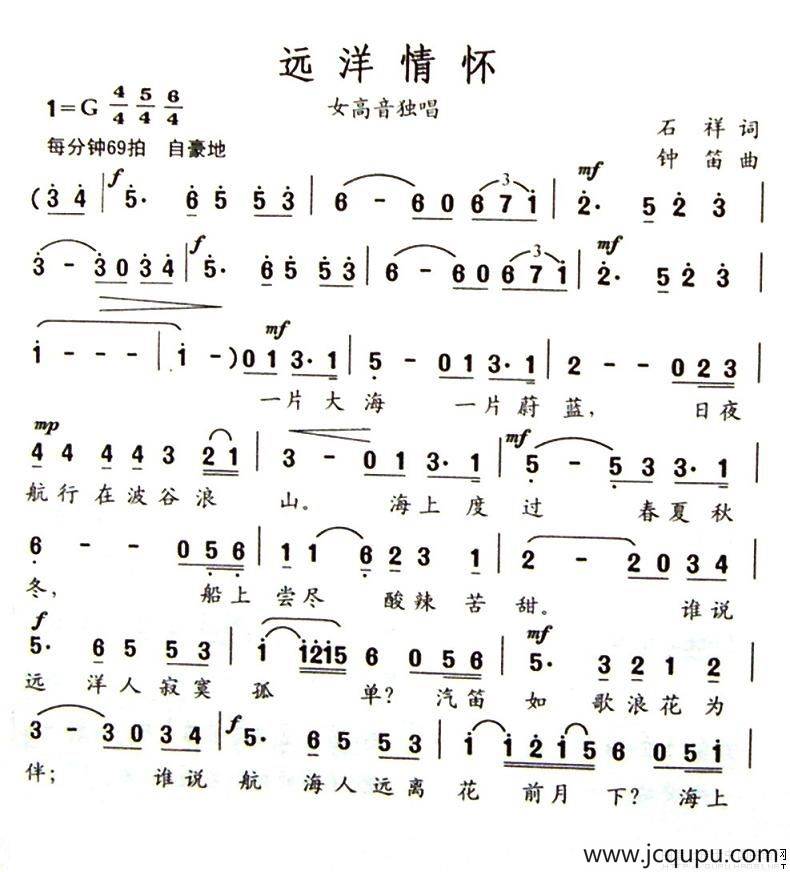 远洋情怀
1=G 4/4 5/4 6/4
女高音独唱
每分钟69拍 自豪地
石祥词
钟笛曲
f mf
( 3 4 | 5· 6 5 5 3 | 6 - 6 0 6 7 1 | 2· 5 2 3 |
f mf
3 - 3 0 3 4 | 5· 6 5 5 3 | 6 - 6 0 6 7 1 | 2· 5 2 3 |
mf
1 - - - | 1 - ) 0 1 3· 1 | 5 - 0 1 3· 1 | 2 - - 0 2 3 |
一片大海 一片蔚蓝, 日夜
mp mf
4 4 4 4 3 2 1 | 3 - 0 1 3· 1 | 5 - 5 3 3 3· 1 |
航行在波谷浪 山。 海上度过 春夏秋
6 - - 0 5 6 | 1 1 6 2 3 1 | 2 - - 2 0 3 4 |
冬, 船上尝尽 酸辣苦甜。 谁说
f mf
5· 6 5 5 3 | 1 1 2 1 5 6 0 5 6 | 5· 3 2 1 2 |
远洋人寂寞孤 单? 汽笛如歌浪花为
f
3 - 3 0 3 4 | 5· 6 5 5 3 | 1 1 2 1 5 6 0 5 1 |
伴; 谁说航海人远离花前月下? 海上
www.jcqupu.com